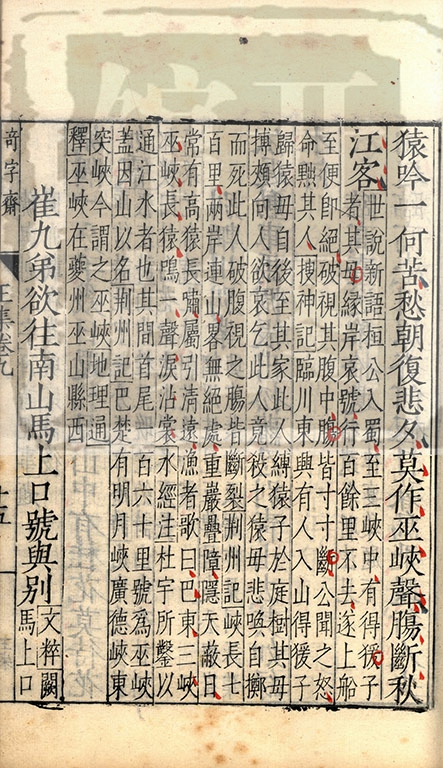 猿吟一何苦愁朝復悲夕莫作巫峽聲腸斷秋
江客
世說新語桓公入蜀至三峽中有得猨子
者其母緣岸哀號行百餘里不去遂上船
至便即絕破視其腹中腸皆寸寸斷公聞之怒
命黜其人搜神記臨川東興有人入山得猨子
歸猿母自後至其家此人縛猿子於庭樹其母
搏頰向人欲哀乞此人竟殺之猿母悲喚自擲
而死此人破腹視之腸皆斷裂荊州記峽長七
百里兩岸連山畧無絕處重巖疊嶂隱天蔽日
常有高猿長嘯屬引清遠漁者歌曰巴東三峽
巫峽長猿鳴一聲淚沾裳水經注杜宇所鑿以
通江水者也其間首尾一百六十里號爲巫峽
蓋因山以名荊州記巴楚有明月峽廣德峽東
突峽今謂之巫峽地理通
釋巫峽在夔州巫山縣西
崔九弟欲往南山馬上口號與別
文粹闕
馬上口
奇字齋
王集卷九
十五